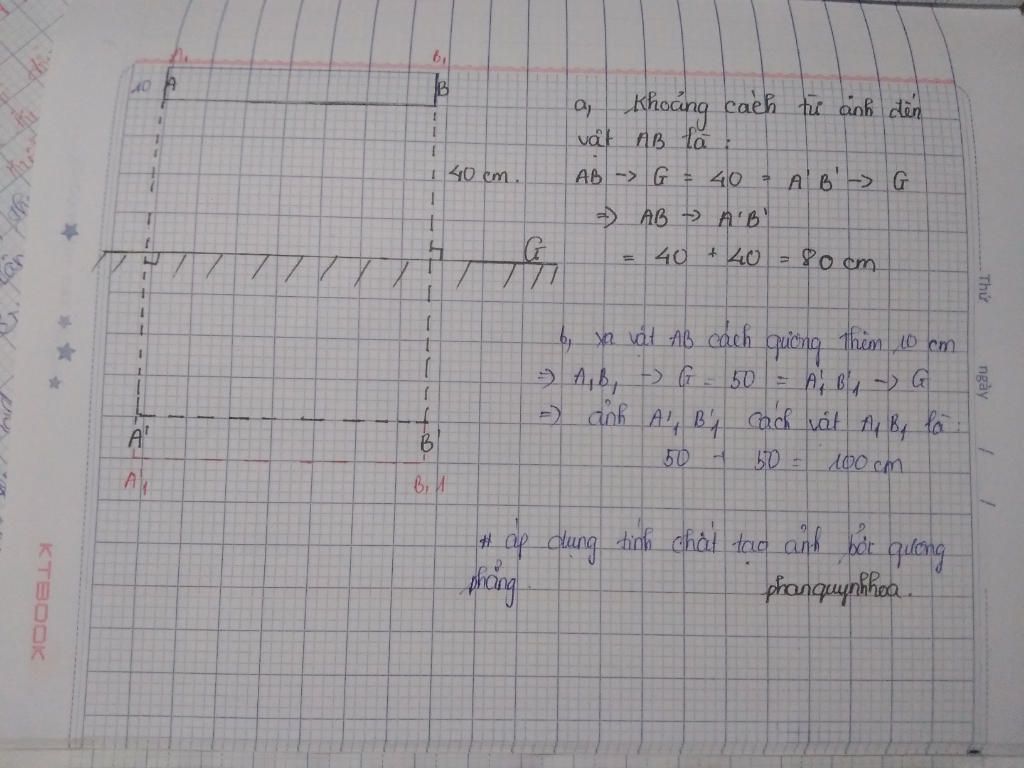 A₁ B₁
10 A B
40 cm.
G
A' B'
A'₁ B'₁
a, Khoảng cách từ ảnh đến
vật AB là :
AB → G = 40 = A'B' → G
⇒ AB → A'B'
= 40 + 40 = 80 cm
b, xa vật AB cách gương thêm 10 cm
⇒ A₁B₁ → G = 50 = A'₁B'₁ → G
⇒ ảnh A'₁B'₁ cách vật A₁B₁ là :
50 + 50 = 100 cm
# áp dụng tính chất tạo ảnh bởi gương
phẳng.
phanquynhhoa.
Thứ ngày / /
KTBOOK